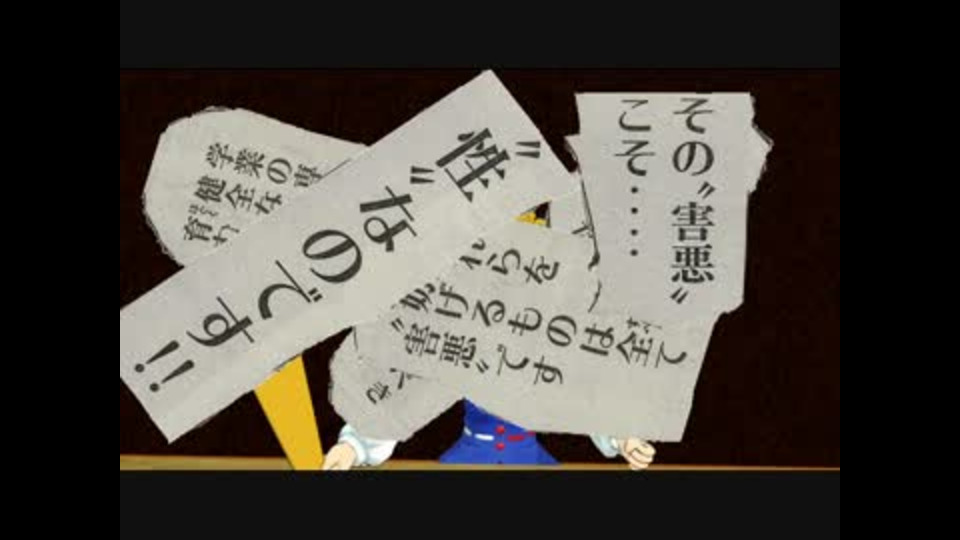 学業の専
健全な
育
れらを
妨げるものは全て
〝害悪〟です
その〝害悪〟
こそ‥‥
〝性〟
なのです!!